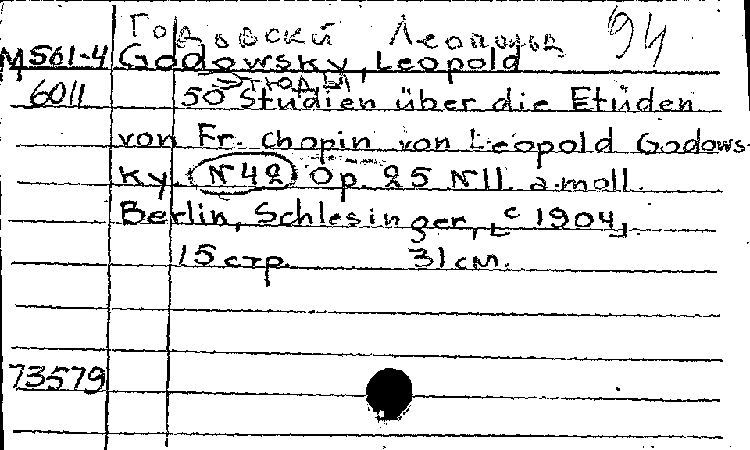 Годовский Леопольд 94
М561-4 Godowsky, Leopold
Этюды
6011 50 Studien über die Etüden
von Fr. Chopin von Leopold Godows-
ky. №42 Op. 25 №11. a.moll.
Berlin, Schlesinger, [c 1904]
15 стр. 31 см.
73579